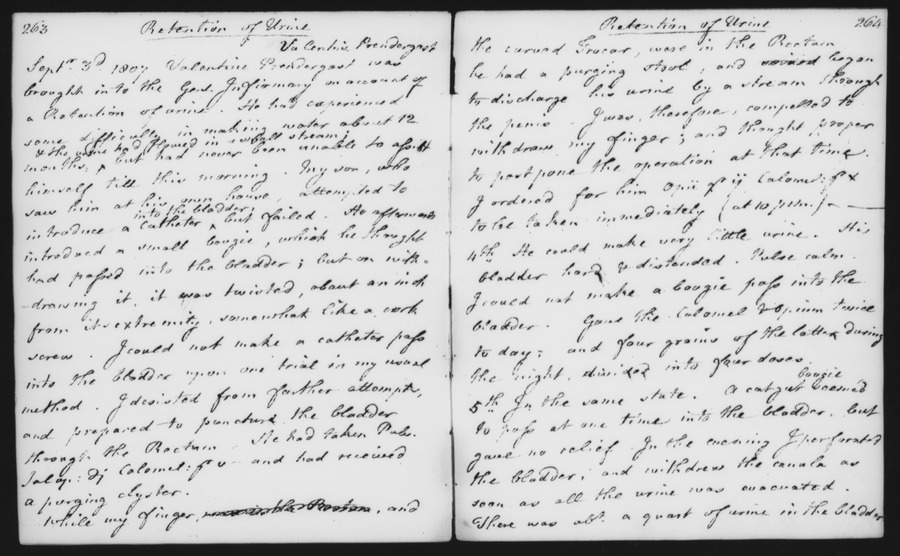 263 Retention of Urine
Valentine Prendergast
Septr. 3d 1807 Valentine Prendergast was
brought into the Genl. Infirmary on account of
a Retention of urine. He had experienced
some difficulty in making water about 12
& the urine had flowed in a small stream;
months, ^ but had never been unable to assist
himself till this morning. My son, who
saw him at his own house, attempted to
into the bladder,
introduce a catheter ^ but failed. He afterwards
introduced a small bougie, which he thought
had passed into the bladder; but on with-
drawing it, it was twisted, about an inch
from its extremity, somewhat like a cork
screw. I could not make a catheter pass
into the bladder upon one trial in my usual
method. I desisted from farther attempts,
and prepared to puncture the bladder
through the Rectum. He had taken Pulv.
Jalap: Calomel: and had received
a purging clyster.
While my finger, , and
Retention of Urine 264
the curved Trocar, were in the Rectum
he had a purging stool, and began
to discharge his urine by a stream through
the penis. I was, therefore, compelled to
withdraw my finger; and thought proper
to postpone the operation at that time.
I ordered for him Opii gr ij Calomel: gr x
to be taken immediately (at 10 p.m.)
4th He could make very little urine. His
bladder hard & distended. Pulse calm.
I could not make a bougie pass into the
bladder. Gave the Calomel & opium twice
to day; and four grains of the latter during
the night, divided into four doses.
bougie
5th In the same state. A catgut seemed
to pass at one time into the bladder, but
gave no relief. In the evening I perforated
the bladder, and withdrew the canula as
soon as all the urine was evacuated.
There was abt. a quart of urine in the bladder